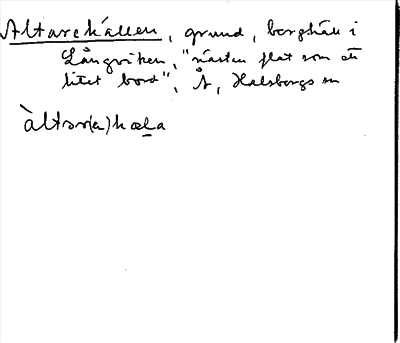 Altarehällen, grund, berghäll i
Långviken, "nästan flat som ett
litet bord", Å, Halsbergs sn
àltar(a)hæla